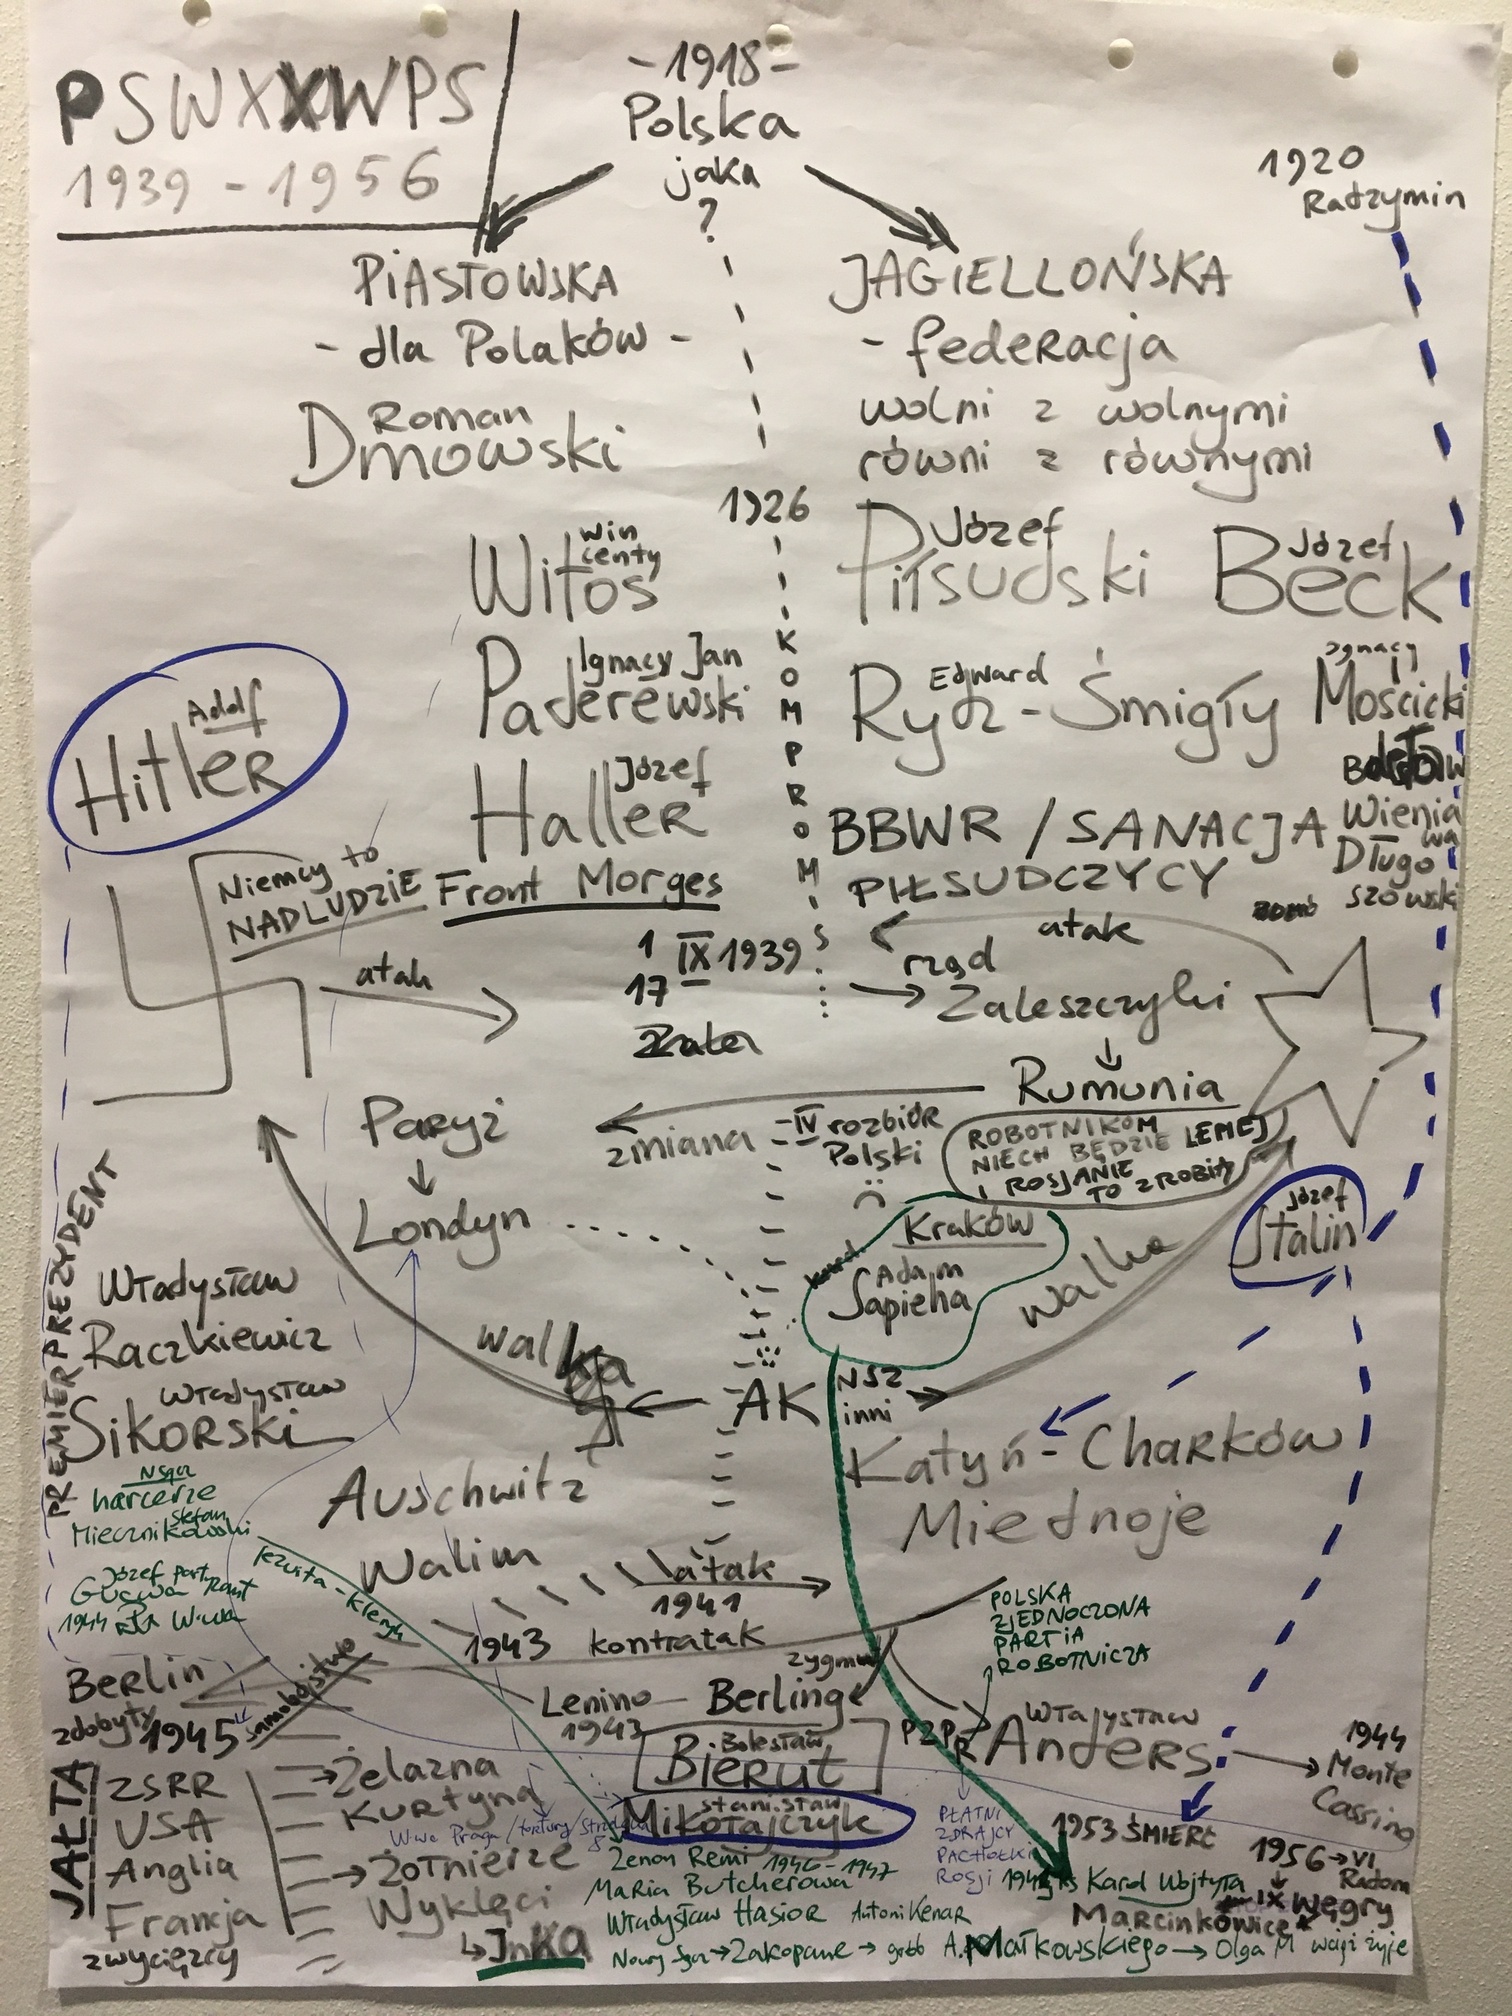 PSWXXWPS
1939 - 1956
- 1918 -
Polska
jaka
?
1920
Radzymin
PIASTOWSKA
- dla Polaków -
Roman
Dmowski
JAGIELLOŃSKA
- federacja
wolni z wolnymi
równi z równymi
1926
KOMPROMIS
Wincenty
Witos
Ignacy Jan
Paderewski
Józef
Haller
Front Morges
Józef
Piłsudski
Józef
Beck
Edward
Rydz-Śmigły
Ignacy
Mościcki
BBWR / SANACJA
PIŁSUDCZYCY
Wieniawa
Długoszowski
Adolf
Hitler
Niemcy to
NADLUDZIE
atak
1 IX 1939
17
atak
rząd
Zaleszczyki
Rumunia
zmiana
IV rozbiór
Polski
Paryż
Londyn
ROBOTNIKOM
NIECH BĘDZIE LEPIEJ
I ROSJANIE
TO ZROBIĄ
Józef
Stalin
Kraków
kard.
Adam
Sapieha
walka
walka
PREMIER PREZYDENT
Władysław
Raczkiewicz
Władysław
Sikorski
AK
NSZ
inni
Katyń - Charków
Miednoje
Auschwitz
Walim
harcerze
Stefan
Miecznikowski
jezuita - kleryk
Józef
1944
atak
1941
1943 kontratak
POLSKA
ZJEDNOCZONA
PARTIA
ROBOTNICZA
PZPR
Berlin
zdobyty
1945
samobójstwo
Lenino
1943
Zygmunt
Berling
Bolesław
Bierut
Stanisław
Mikołajczyk
Władysław
Anders
1944
Monte
Cassino
JAŁTA
ZSRR
USA
Anglia
Francja
zwycięzcy
Żelazna
Kurtyna
Żołnierze
Wyklęci
Inka
PŁATNI
ZDRAJCY
PACHOŁKI
ROSJI
1953 ŚMIERĆ
1956 → VI
Radom
IX Węgry
Zenon Remi 1946 - 1947
Maria Butcherowa
Karol Wojtyła
Marcinkowice
Władysław Hasior Antoni Kenar
Nowy Sącz → Zakopane → grób A. Małkowskiego → Olga M wciąż żyje